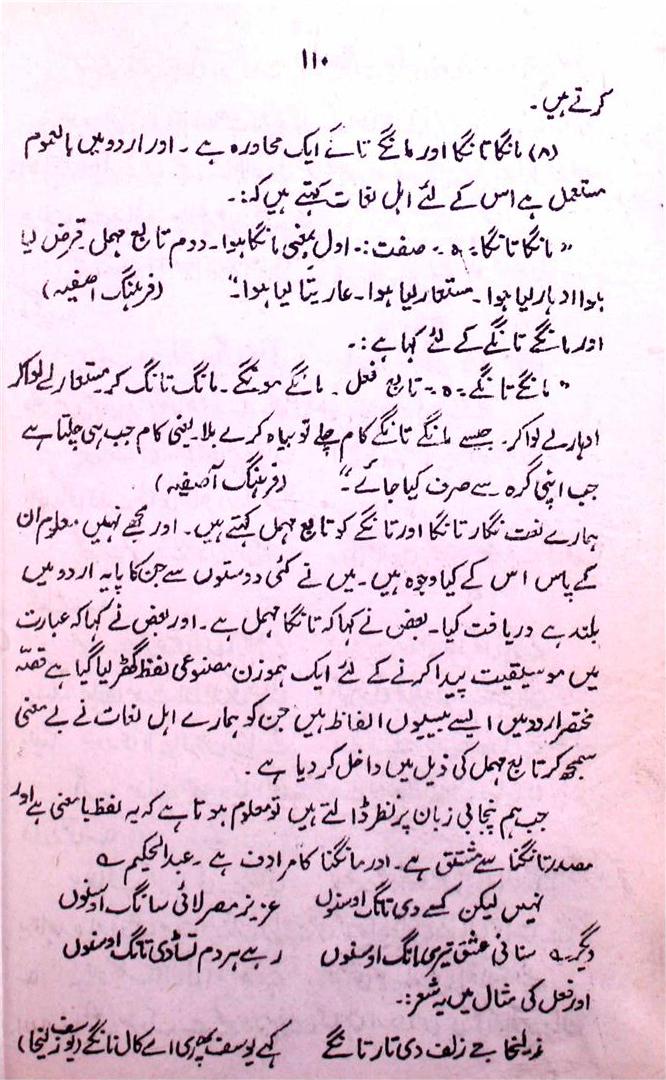 ۱۱۰
کرتے ہیں۔
(۸) مانگا تانگا اور مانگے تانگے ایک محاورہ ہے۔ اور اردو میں بالعموم
مستعمل ہے اس کے لئے اہل لغات کہتے ہیں کہ:۔
”مانگا تانگا۔ ہ۔ صفت:۔ اول بمعنی مانگا ہوا۔ دوم تابع مہمل قرض لیا
ہوا ادہار لیا ہوا۔ مستعار لیا ہوا۔ عاریتاً لیا ہوا۔“ (فرہنگ آصفیہ)
اور مانگے تانگے کے لئے کہا ہے:۔
”مانگے تانگے۔ ہ۔ تابع فعل۔ مانگے مونگے۔ مانگ تانگ کر مستعار لے لواکر
ادہار لے لواکر۔ جیسے مانگے تانگے کام چلے تو بیاہ کرے بلا۔ یعنی کام جب ہی چلتا ہے
جب اپنی گرہ سے صرف کیا جائے۔“ (فرہنگ آصفیہ)
ہمارے لغت نگار تانگا اور تانگے کو تابع مہمل کہتے ہیں۔ اور مجھے نہیں معلوم ان
کے پاس اس کے کیا وجوہ ہیں۔ میں نے کئی دوستوں سے جن کا پایہ اردو میں
بلند ہے دریافت کیا۔ بعض نے کہا کہ تانگا مہمل ہے۔ اور بعض نے کہا کہ عبارت
میں موسیقیت پیدا کرنے کے لئے ایک ہموزن مصنوعی لفظ گھڑ لیا گیا ہے قصّہ
مختصر اردو میں ایسے بیسیوں الفاظ ہیں جن کو ہمارے اہل لغات نے بے معنی
سمجھ کر تابع مہمل کی ذیل میں داخل کر دیا ہے۔
جب ہم پنجابی زبان پر نظر ڈالتے ہیں تو معلوم ہوتا ہے کہ یہ لفظ بامعنی ہے اور
مصدر تانگنا سے مشتق ہے۔ اور مانگنا کا مرادف ہے۔ عبدالحکیم ؎
نہیں لیکن کسے دی تانگ اوسنوں عزیز مصر لائی سانگ اوسنوں
دیگر ؎ سنا نی عشق تیری مانگ اوسنوں رہے ہر دم تساڈی تانگ اوسنوں
اور فعل کی مثال میں یہ شعر:۔
زلیخا جے زلف دی تار تانگے کہے یوسف پھڑی اے کال نانگے (یوسف زلیخا)